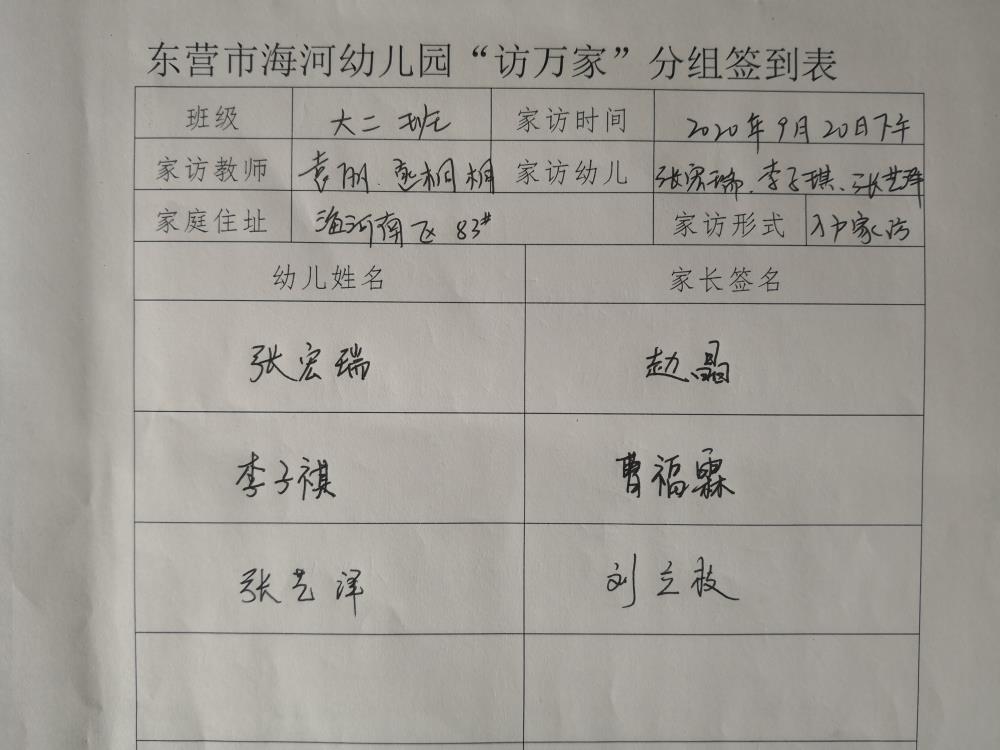 东营市海河幼儿园“访万家”分组签到表
班级 大二班 家访时间 2020年9月20日下午
家访教师 袁朋、桐桐 家访幼儿 张宏瑞、李子琪、张艺洋
家庭住址 海河南区 83# 家访形式 入户家访
幼儿姓名 家长签名
张宏瑞 赵晶
李子祺 曹福霖
张艺洋 刘立枝